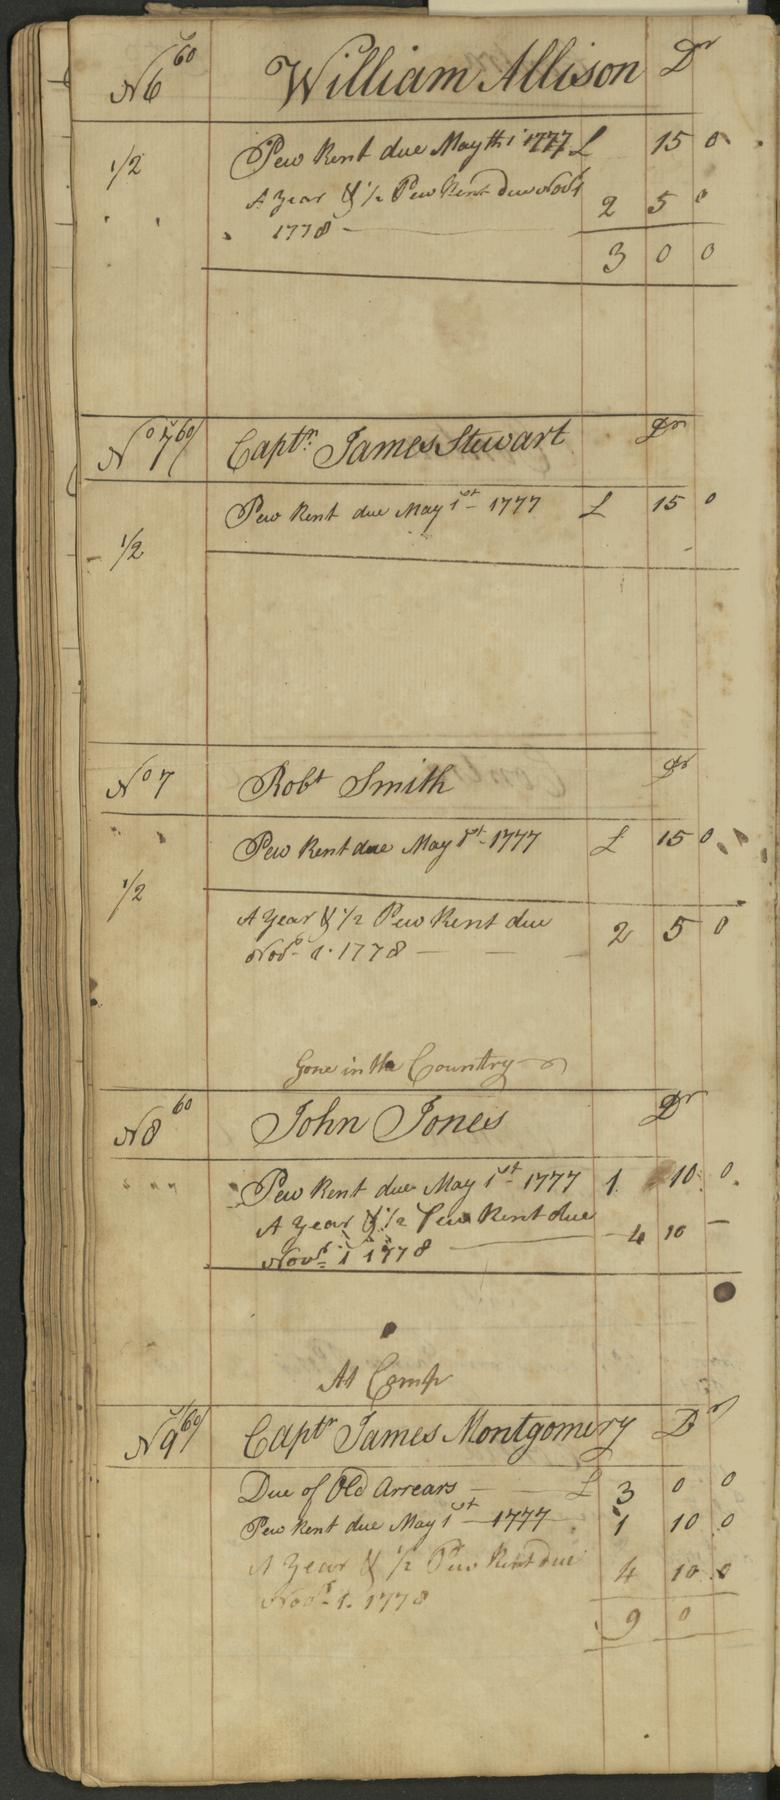 N6 60 William Allison Dr
1/2 Pew Rent due May th 1 1777 £ 15 0
A Year & 1/2 Pew Rent Due Novr 1 2 5 0
1778 -
3 0 0
No 7 60/ Captn. James Stewart Dr
Pew Rent due May 1st - 1777 £ 15 0
1/2
No 7 Robt Smith Dr
Pew Rent due May 1st - 1777 £ 15 0
1/2
A Year & 1/2 Pew Rent due 2 5 0
Novr 1. 1778 — —
Gone in the Country
N8 60 John Jones Dr
Pew Rent due May 1st 1777 1 10 0
A Year & 1/2 Pew Rent due 4 10 —
Novr 1 1778
At Camp
N9 60/ Captn James Montgomery Dr
Due of Old Arrears — — £ 3 0 0
Pew Rent due May 1st 1777 1 10 0
A Year & 1/2 Pew Rent due 4 10 0
Novr 1. 1778
9 0